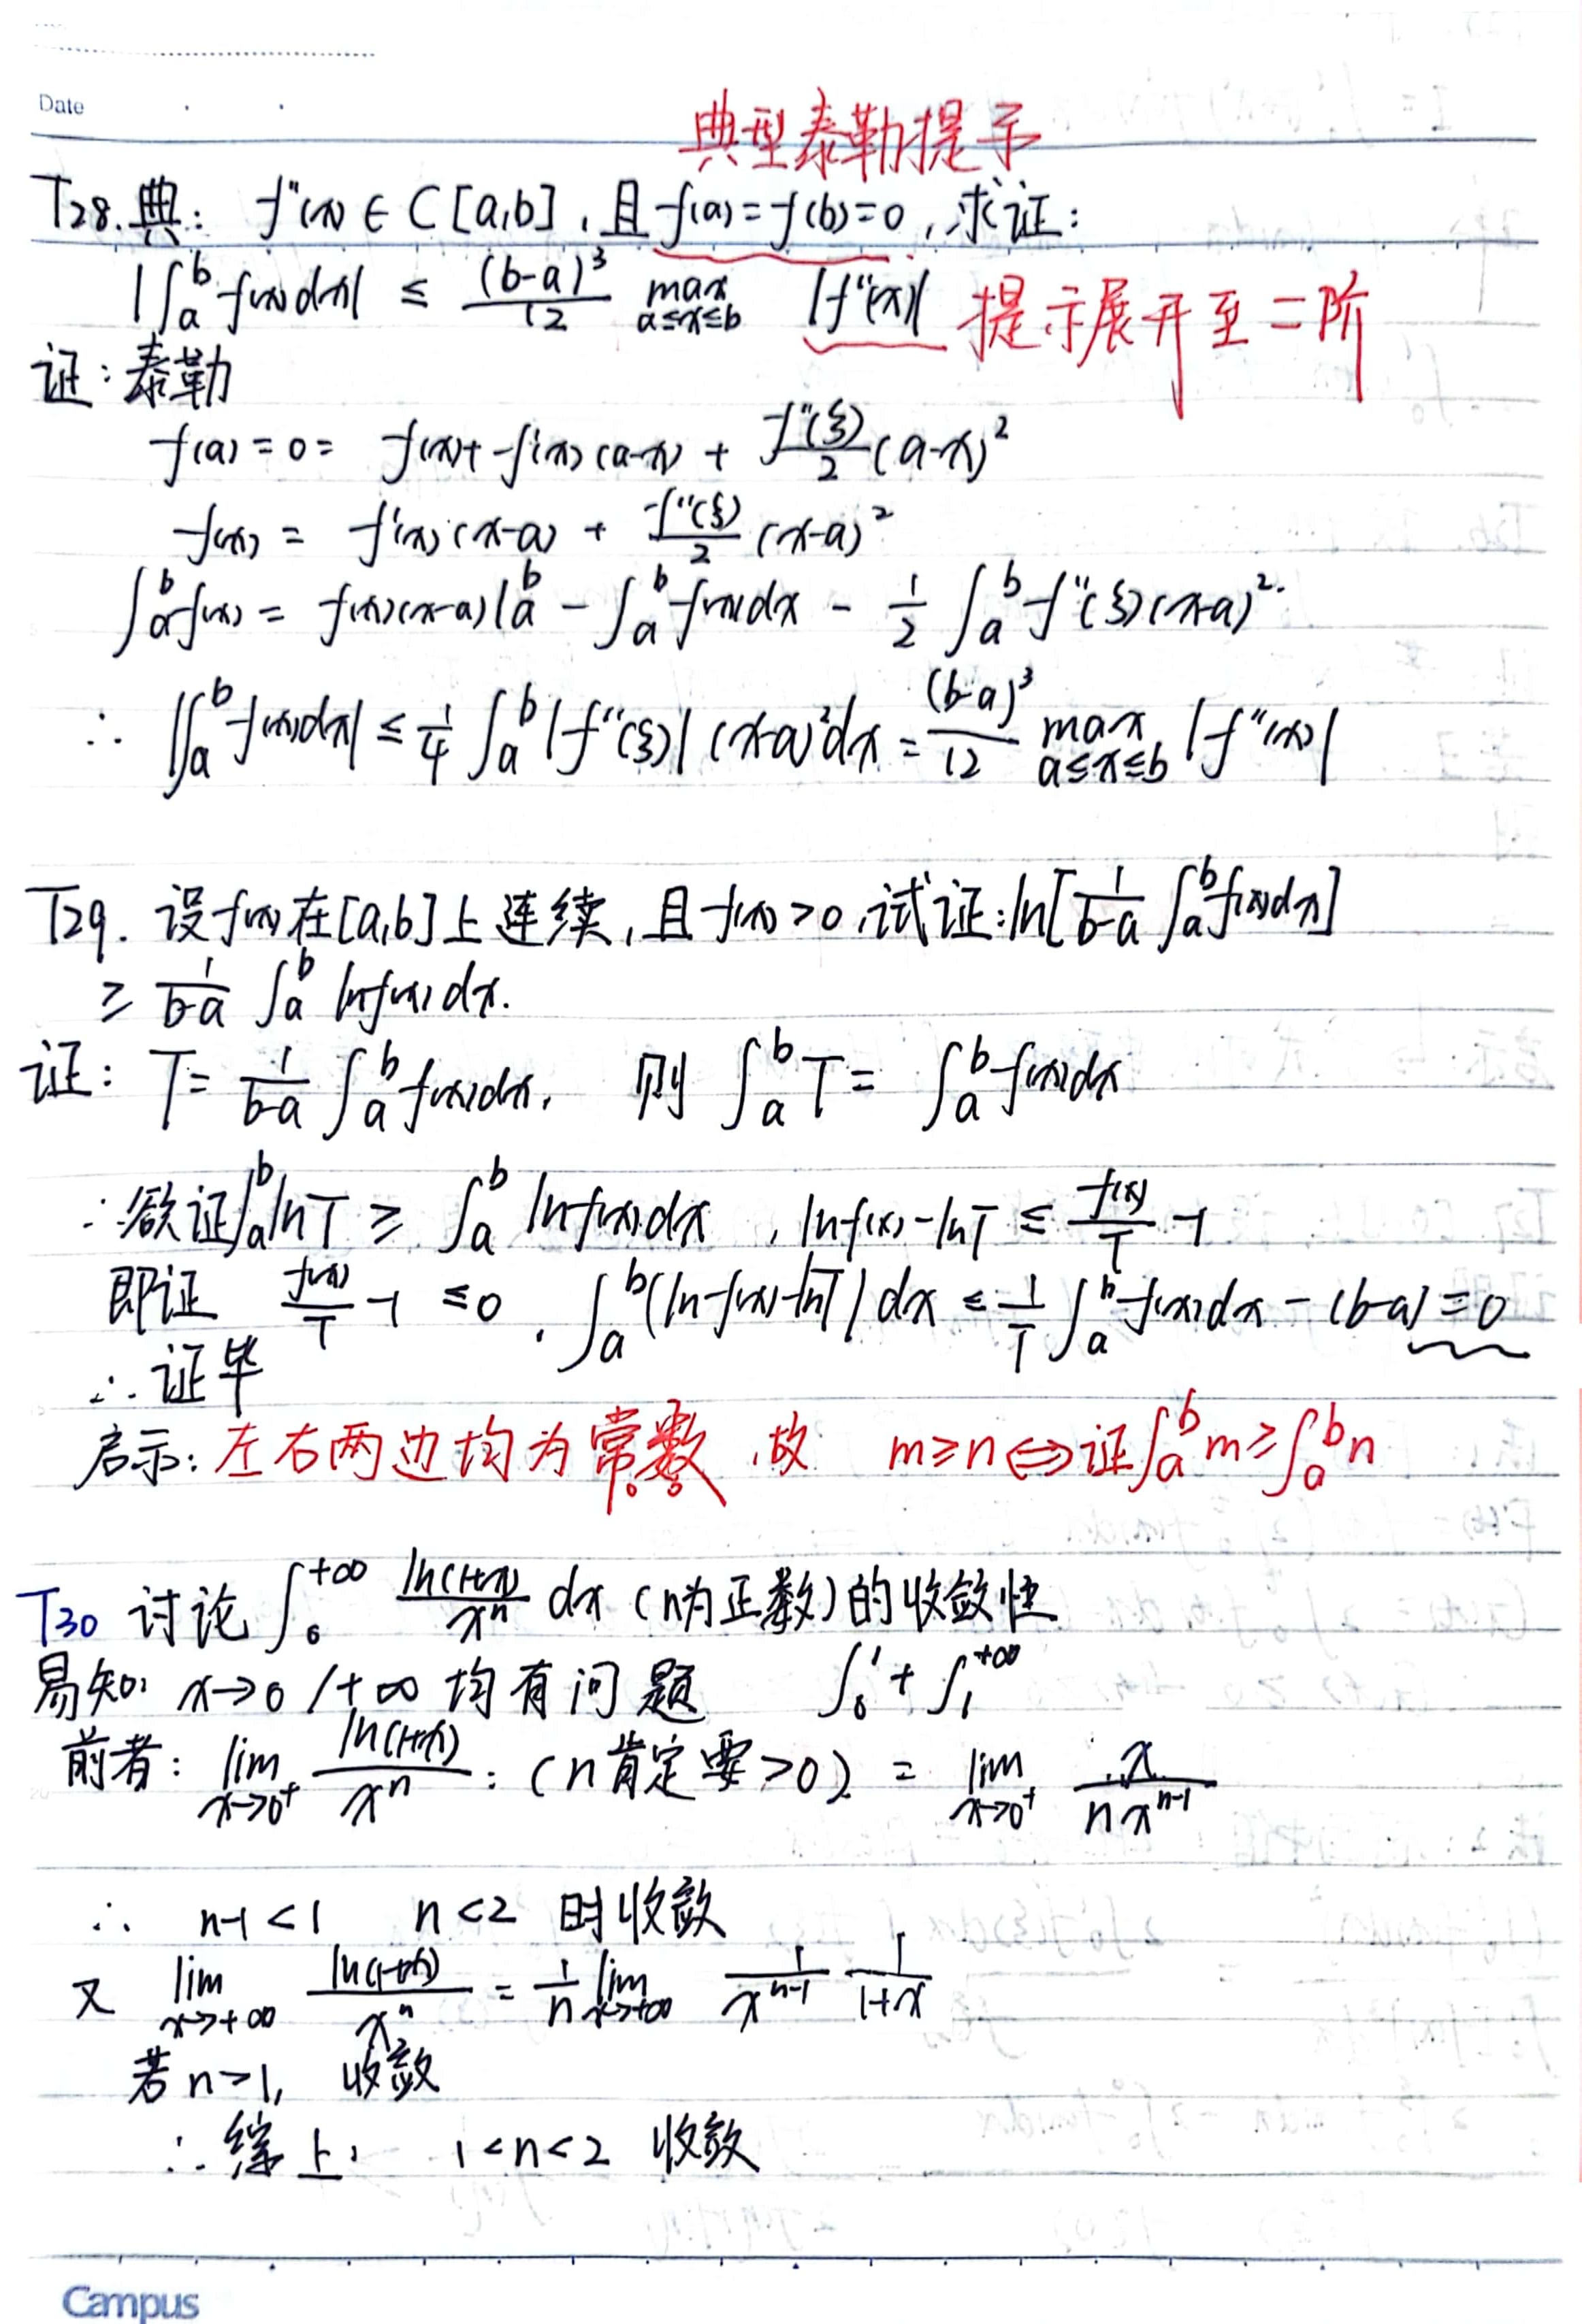 Date
典型泰勒提示
T28.典: f''(x) ∈ C[a,b],且f(a)=f(b)=0,求证:
|∫_a^b f(x)dx| ≤ (b-a)^3/12 max_{a≤x≤b} |f''(x)| 提示展开至二阶
证:泰勒
f(a)=0= f(x)+f'(x)(a-x) + f''(ξ)/2 (a-x)^2
f(x) = f'(x)(x-a) + f''(ξ)/2 (x-a)^2
∫_a^b f(x) = f(x)(x-a)|_a^b - ∫_a^b f(x)dx - 1/2 ∫_a^b f''(ξ)(x-a)^2
∴ |∫_a^b f(x)dx| ≤ 1/4 ∫_a^b |f''(ξ)| (x-a)^2 dx = (b-a)^3/12 max_{a≤x≤b} |f''(x)|
T29. 设f(x)在[a,b]上连续,且f(x)>0,试证:ln[1/(b-a) ∫_a^b f(x)dx]
≥ 1/(b-a) ∫_a^b lnf(x)dx.
证: T= 1/(b-a) ∫_a^b f(x)dx, 则 ∫_a^b T = ∫_a^b f(x)dx
∴欲证∫_a^b lnT ≥ ∫_a^b lnf(x)dx , lnf(x)-lnT ≤ f(x)/T -1
即证 f(x)/T -1 ≤0 . ∫_a^b (lnf(x)-lnT)dx ≤ 1/T ∫_a^b f(x)dx - (b-a) = 0
∴证毕
启示:左右两边均为常数,故 m≥n⇔证∫_a^b m≥∫_a^b n
T30 讨论 ∫_0^{+∞} ln(1+x)/x^n dx (n为正数)的收敛性
易知: x→0 /+∞ 均有问题 ∫_0^1 + ∫_1^{+∞}
前者: lim_{x→0+} ln(1+x)/x^n : (n肯定要>0) = lim_{x→0+} x/(n x^{n-1})
∴ n-1<1 n<2 时收敛
又 lim_{x→+∞} ln(1+x)/x^n = 1/n lim_{x→+∞} 1/x^{n-1} 1/(1+x)
若n>1, 收敛
∴综上, 1<n<2 收敛
Campus